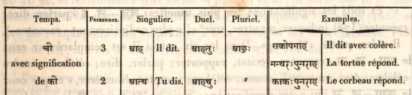 Temps. Personnes. Singulier. Duel. Pluriel. Exemples.
3 आह Il dit. आहतुः आहुः Il dit avec colère.
avec signification La tortue répond.
de 2 आत्थ Tu dis. आहथुः ″ Le corbeau répond.